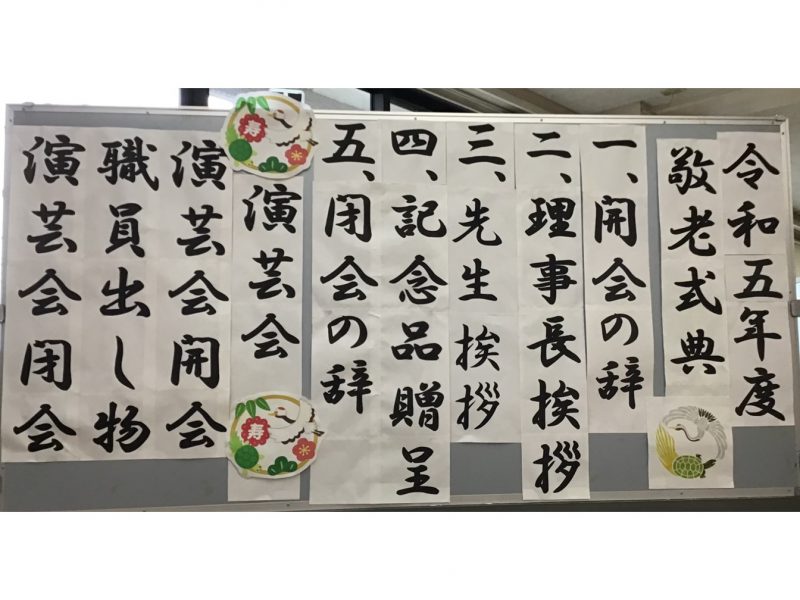 令和五年度
敬老式典
一、開会の辞
二、理事長挨拶
三、先生挨拶
四、記念品贈呈
五、閉会の辞
寿
演芸会
寿
演芸会開会
職員出し物
演芸会閉会